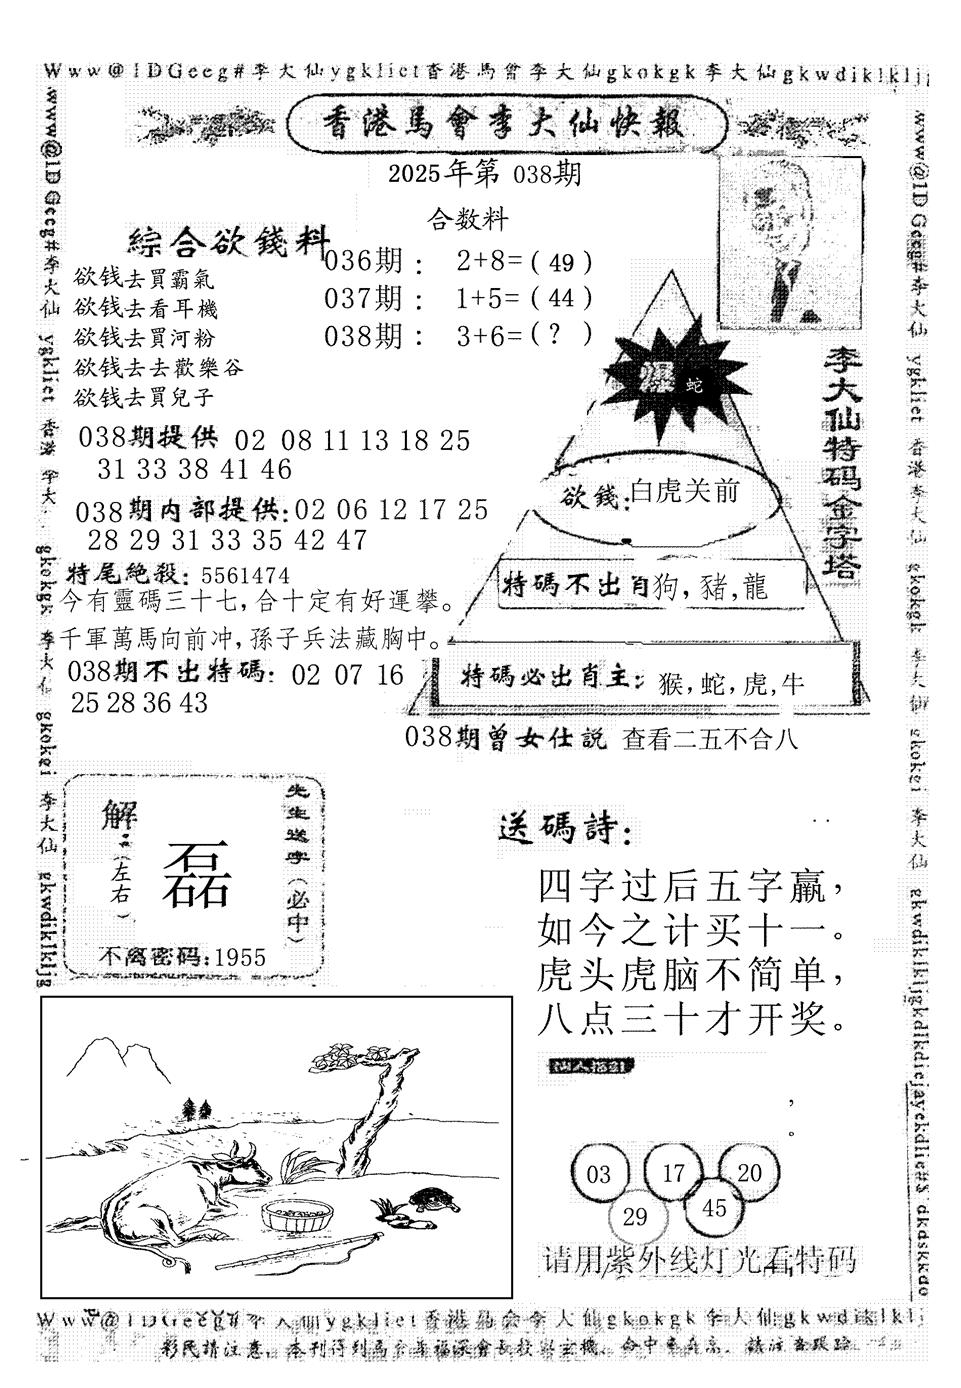 Www@1DGeeg#李大仙ygkliet香港馬會李大仙gkokgk李大仙gkwdiklkljg
香港馬會李大仙快報
2025年第 038期
合数料
綜合欲錢料
036期： 2+8=（49）
037期： 1+5=（44）
038期： 3+6=（?）
欲钱去買霸氣
欲钱去看耳機
欲钱去買河粉
欲钱去去歡樂谷
欲钱去買兒子
爆 蛇
李大仙特码金字塔
038期提供 02 08 11 13 18 25
31 33 38 41 46
欲錢:白虎关前
038期内部提供:02 06 12 17 25
28 29 31 33 35 42 47
特尾絶殺: 5561474
特碼不出肖狗,豬,龍
今有靈碼三十七,合十定有好運攀。
千軍萬馬向前冲,孫子兵法藏胸中。
038期不出特碼: 02 07 16
25 28 36 43
特碼必出肖主: 猴,蛇,虎,牛
038期曾女仕説 查看二五不合八
先生送字(必中)
解:(左右)
磊
不离密码:1955
送碼詩:
四字过后五字赢,
如今之计买十一。
虎头虎脑不简单,
八点三十才开奖。
,
。
03 17 20
29 45
请用紫外线灯光看特码
Www@1DGeeg#李大仙ygkliet香港馬会李大仙gkokgk李大仙gkwdiklklj